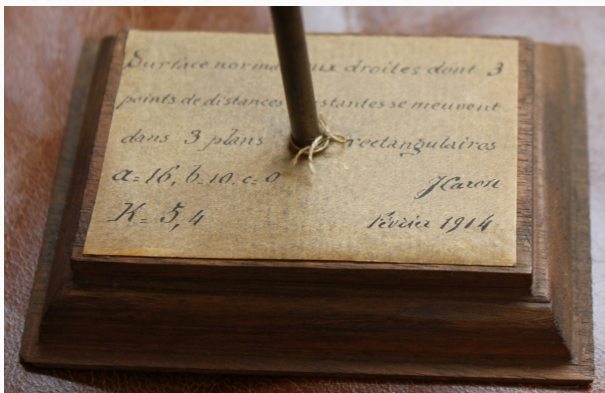 Surface norma ux droites dont 3
points de distances stantes se meuvent
dans 3 plans rectangulaires
a=16, b=10. c=0 JCaron
K= 5,4 février 1914